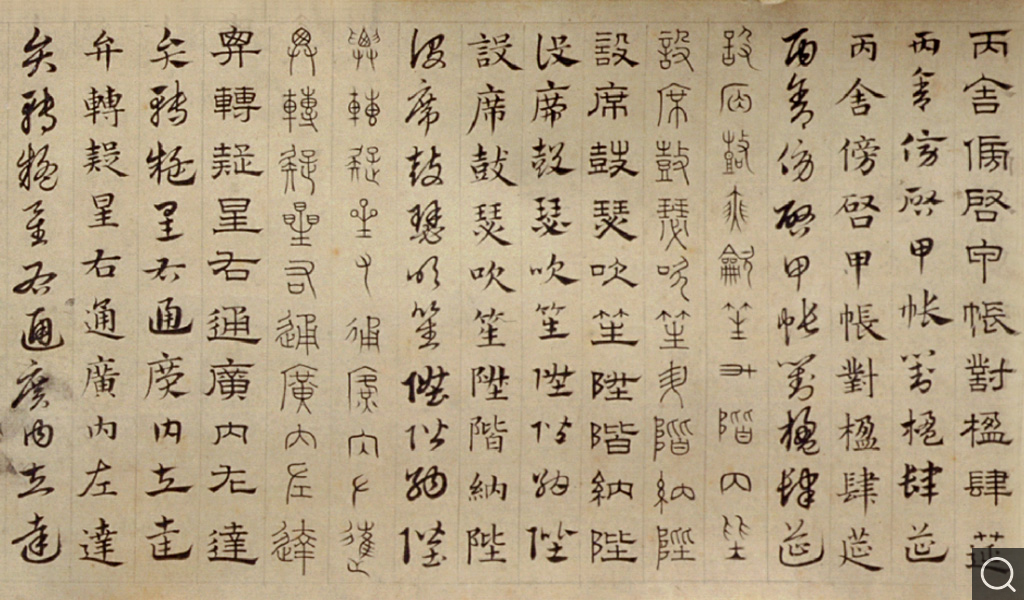 丙舍傍啓甲帳對楹肆筵
丙舍傍啓甲帳對楹肆筵
丙舍傍啓甲帳對楹肆筵
丙舍傍啓甲帳對楹肆筵
設席鼓瑟龡笙升階內陛
設席鼓瑟吹笙升階納陛
設席鼓瑟吹笙陞階納陛
設席鼓瑟吹笙陞階納陛
設席鼓瑟吹笙陞階納陛
設席鼓瑟吹笙陞階納陛
弁轉疑星右通廣內左達
弁轉疑星右通廣內左達
弁轉疑星右通廣內左達
弁轉疑星右通廣內左達
弁轉疑星右通廣內左達
弁轉疑星右通廣內左達